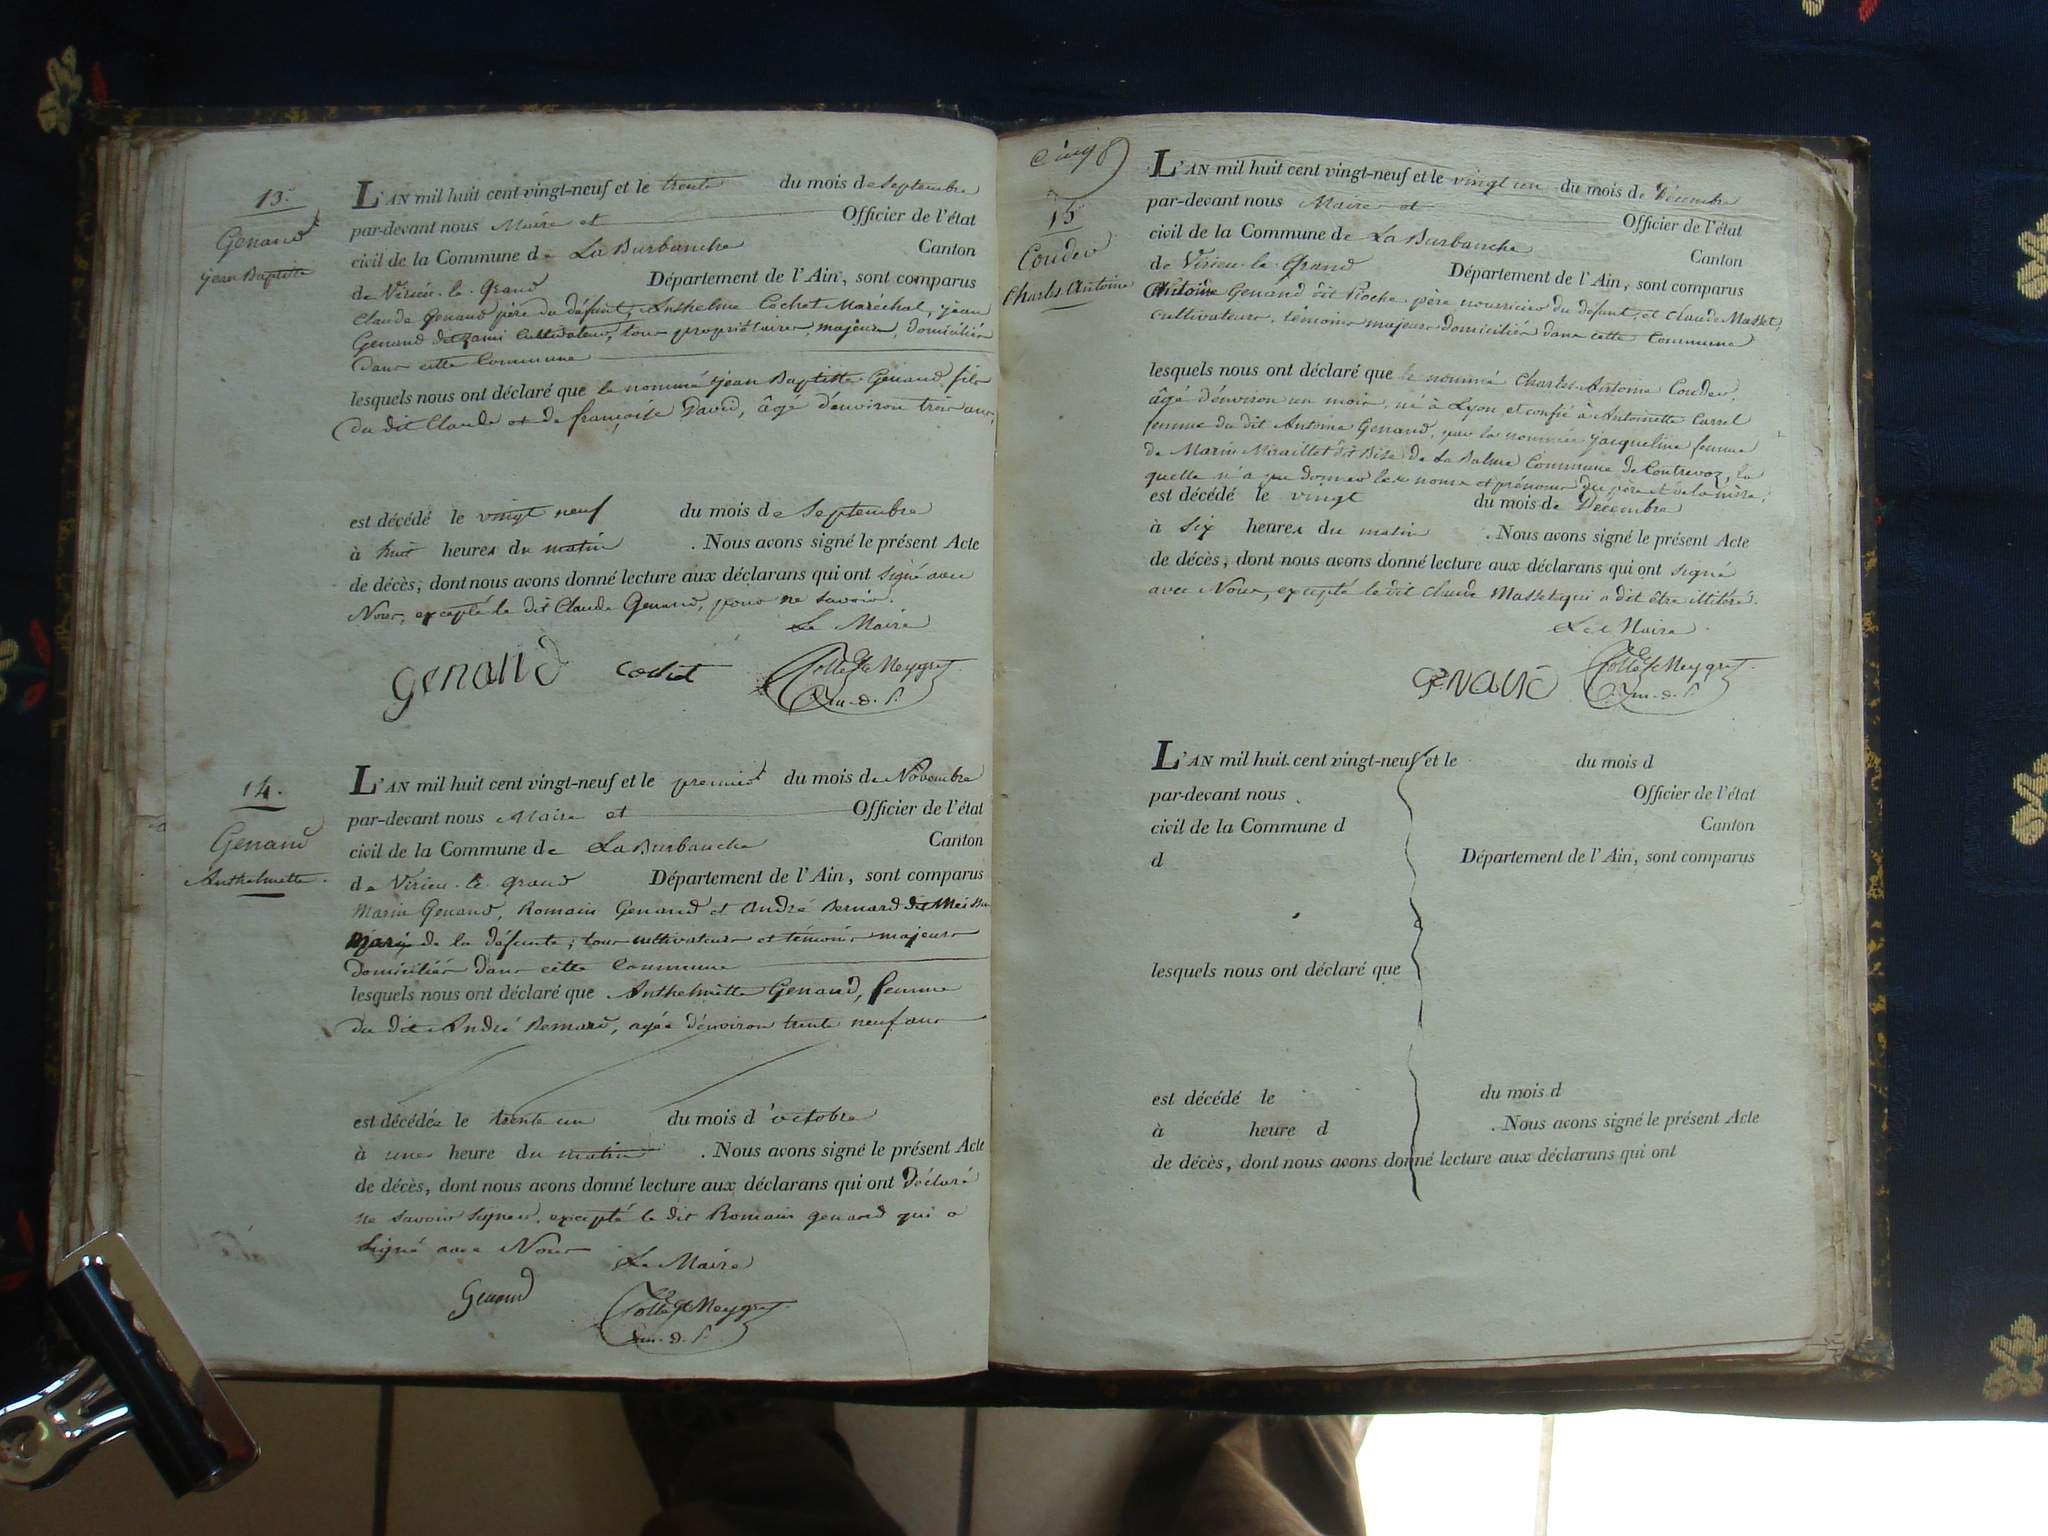 13.
Genand
Jean Baptiste
L'AN mil huit cent vingt-neuf et le trente du mois de Septembre
par-devant nous Maire et Officier de l'état
civil de la Commune de La Burbanche Canton
de Virieu-le-Grand Département de l'Ain, sont comparus
Claude Genand père du défunt, Anthelme Cochet Maréchal, jean
Genand dit cultivateur, tous propriétaires majeurs, domiciliés
dans cette Commune
lesquels nous ont déclaré que le nommé Jean Baptiste Genand fils
du dit Claude et de françoise David, âgé d'environ trois ans,
est décédé le vingt neuf du mois de Septembre
à huit heures du matin . Nous avons signé le présent Acte
de décès, dont nous avons donné lecture aux déclarans qui ont signé avec
Nous, excepté le dit Claude Genand, pour ne savoir.
Le Maire
Genand Cochet
14.
Genand
Anthelmette.
L'AN mil huit cent vingt-neuf et le premier du mois de Novembre
par-devant nous Maire et Officier de l'état
civil de la Commune de La Burbanche Canton
de Virieu-le-grand Département de l'Ain, sont comparus
Marin Genand, Romain Genand et André Bernard dit
Mari de la défunte; tous cultivateurs et témoins majeurs
domiciliés dans cette Commune
lesquels nous ont déclaré que Anthelmette Genand, femme
du dit André Bernard, agée d'environ trente neuf ans
est décédée le trente un du mois d'octobre
à une heure du matin . Nous avons signé le présent Acte
de décès, dont nous avons donné lecture aux déclarans qui ont déclaré
ne savoir signer, excepté le dit Romain genand qui a
signé avec Nous
Le Maire
Genand
Cinq
15
Couder
Charles Antoine
L'AN mil huit cent vingt-neuf et le vingt un du mois de Décembre
par-devant nous Maire et Officier de l'état
civil de la Commune de La Burbanche Canton
de Virieu-le-Grand Département de l'Ain, sont comparus
Antoine Genand dit Pioche père nourricier du défunt, et Claude Masset,
cultivateurs, témoins majeurs domiciliés dans cette Commune
lesquels nous ont déclaré que le nommé Charles Antoine Couder,
âgé d'environ un mois, né à Lyon et confié à Antoinette Carrel
femme du dit Antoine Genand, par la nommée Jacqueline femme
de Marin Miraillet dit Bise de La Balme Commune de Contrevoz, la
quelle n'a pu donner les noms et prénoms du père et de la mère,
est décédé le vingt du mois de Décembre
à six heures du matin . Nous avons signé le présent Acte
de décès, dont nous avons donné lecture aux déclarans qui ont signé
avec Nous, excepté le dit Claude Masset qui a dit être illitéré.
Le Maire
GENAND
L'AN mil huit cent vingt-neuf et le du mois d
par-devant nous Officier de l'état
civil de la Commune d Canton
d Département de l'Ain, sont comparus
lesquels nous ont déclaré que
est décédé le du mois d
à heure d . Nous avons signé le présent Acte
de décès, dont nous avons donné lecture aux déclarans qui ont